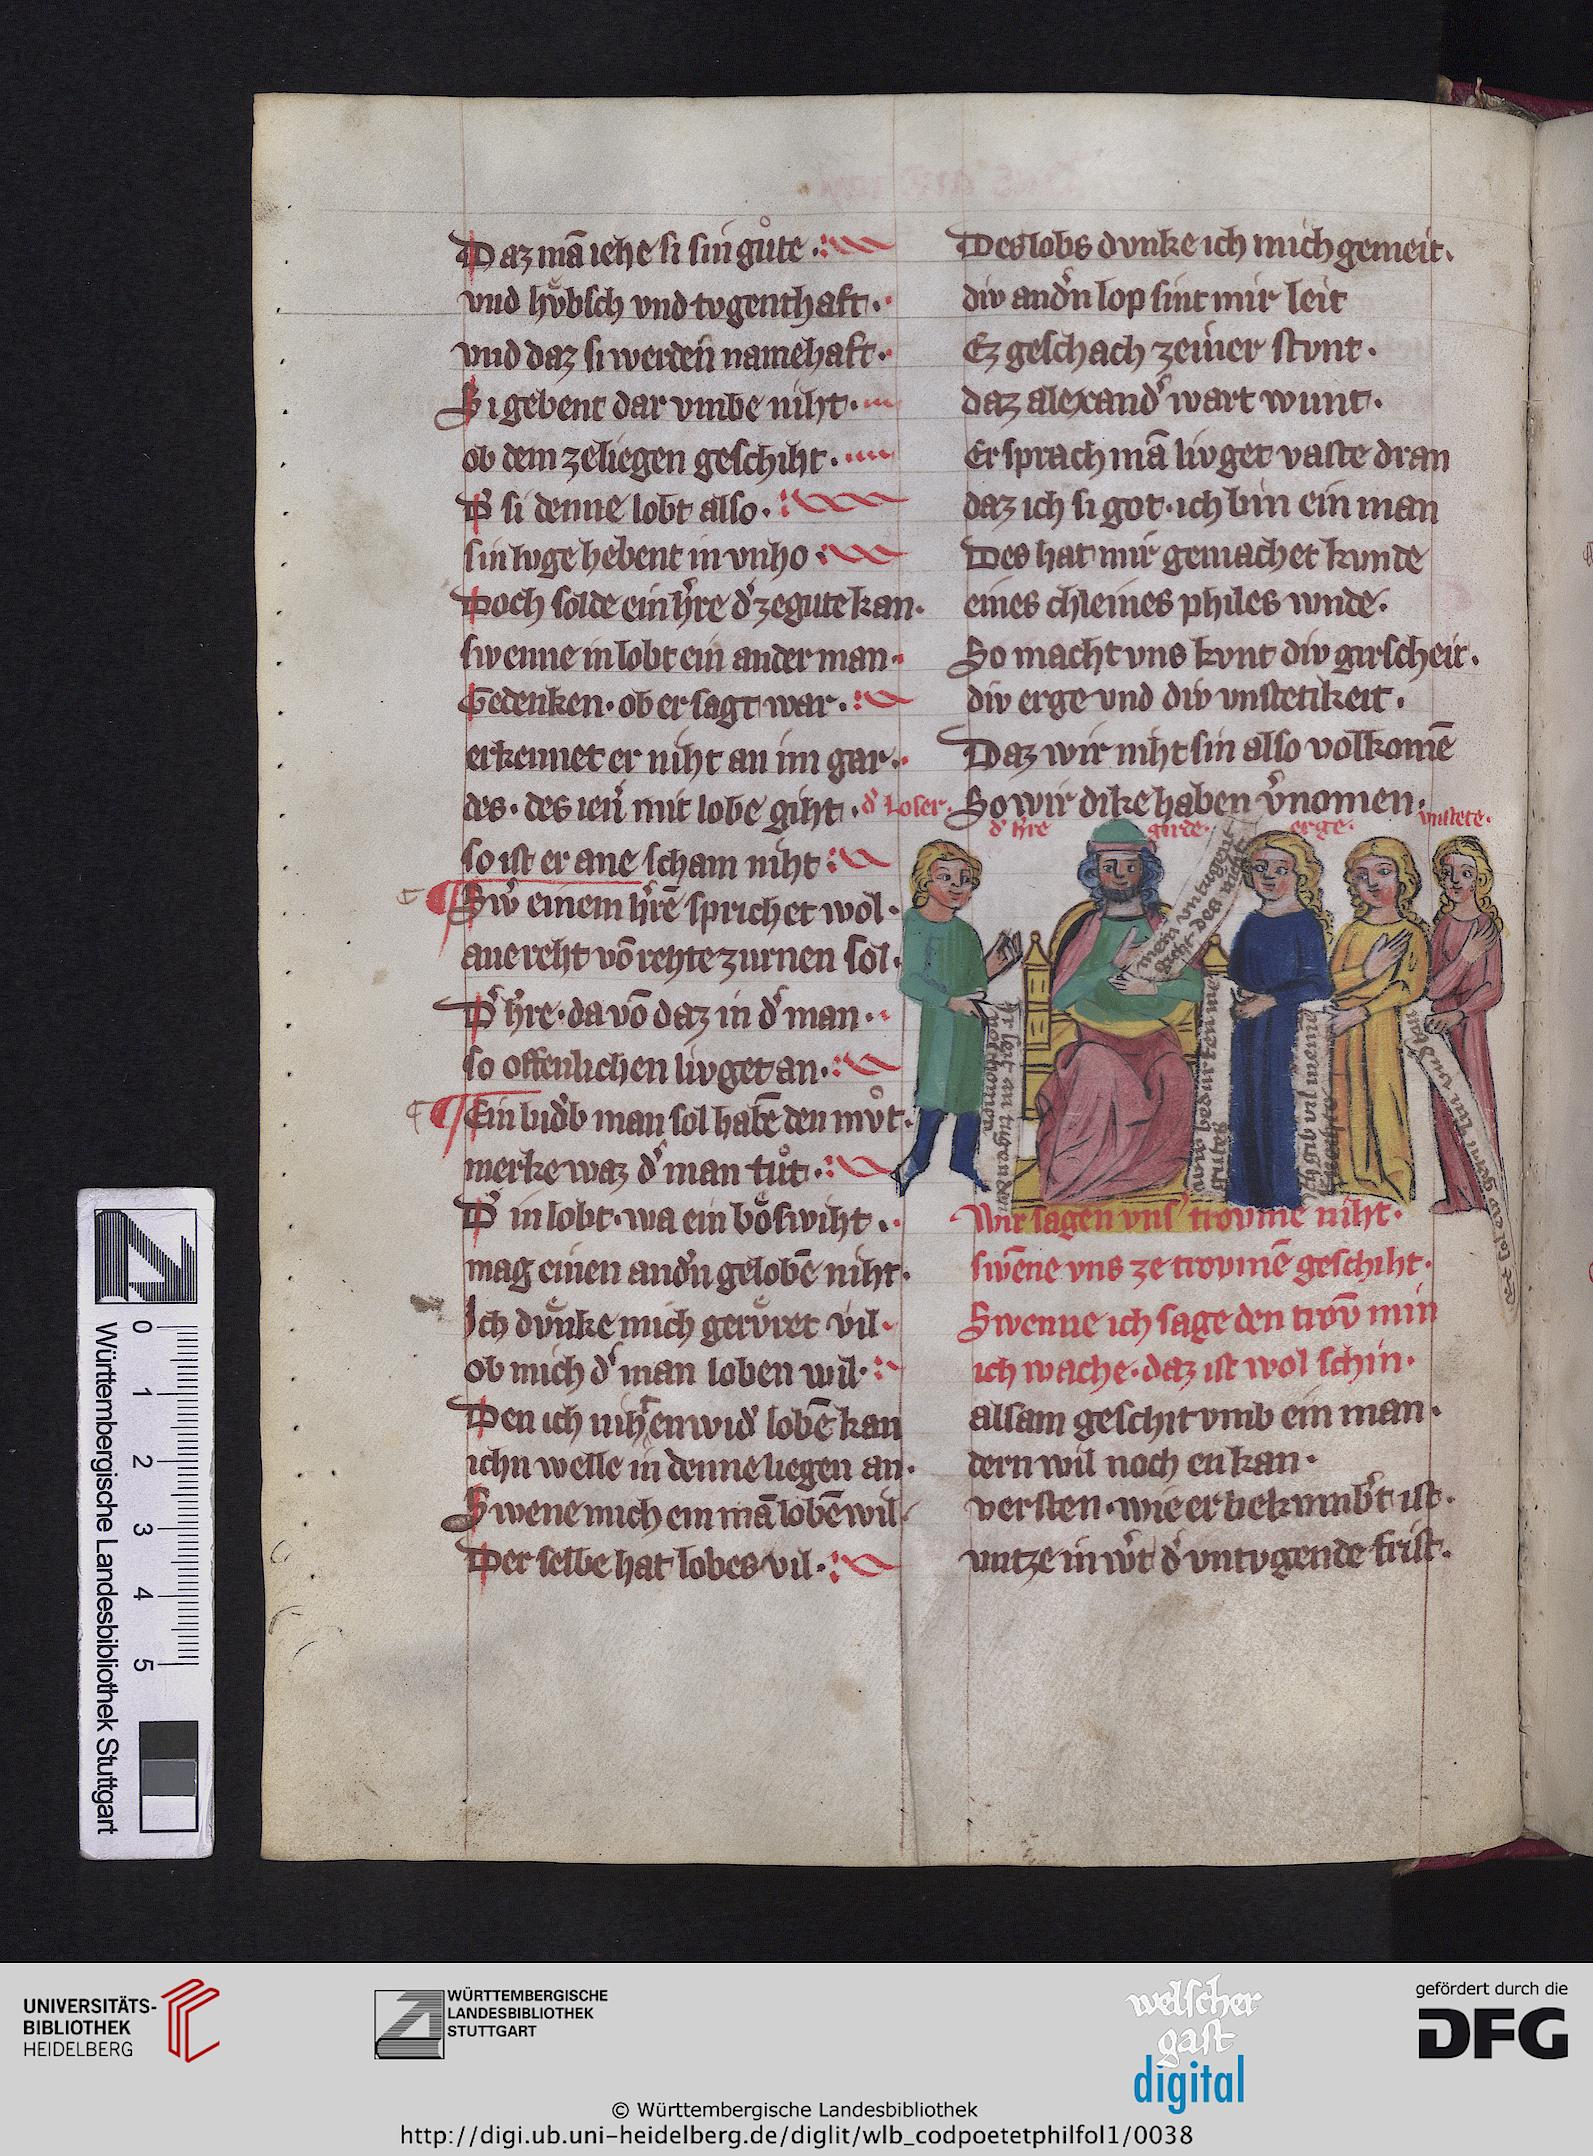 Daz mā iehe si sin gůte
vnd hv̊bsch vnd tvgenthaft
vnd daz si werden namehaft
Si gebent dar vmbe niht
ob dem ze liegen geschiht
D' si denne lobt also
sin lvge hebent in vnho
Doch solde ein h're d' ze gute kan
swenne in lobt ein ander man
Gedenken ob er sagt war
erkennet er niht an im gar
des des ien' mit lobe giht
so ist er ane scham niht
Sw' einem h'rē sprichet wol
aue reht vō rehte zurnen sol
D' h're da vō daz in d' man
so offenlichen livget an
Ein bid'b man sol habē den mv̊t
merke waz d' man tůt
D' in lobt wa ein bőswiht
mag einen and'n gelobē niht
Ich dv̊nke mich gerv̊ret vil
ob mich d' man loben wil
Den ich niht en wid' lobē kan
ichn welle in denne liegen an
Swene mich ein mā lobē wil
Der selbe hat lobes vil
Des lobs dvnke ich mich gemeit
div and'n lop sint mir leit
Ez geschach zeiner stvnt
daz alexand' wart wunt
Er sprach mā livget vaste dran
daz ich si got ich bin ein man
Des hat mir gemachet kunde
eines chleines philes wnde
So macht vns kvnt div girscheit
div erge vnd div vnstetikeit
Daz wir niht sin also volkomē
So wir dike haben v'nomen
d' Loser
d' h're
girde
erge
vnstete
Wir sagen vns' trovme niht
swēne vns ze trovmē geschiht
Swenne ich sage den trov̄ min
ich wache daz ist wol schin
alsam geschit vmb ein man
dern wil noch en kan
versten wie er bekumb't ist
vntze in w't d' vntvgende frist
Württembergische Landesbibliothek Stuttgart
0 1 2 3 4 5
UNIVERSITÄTS-
BIBLIOTHEK
HEIDELBERG
WÜRTTEMBERGISCHE
LANDESBIBLIOTHEK
STUTTGART
welscher
gast
digital
gefördert durch die
DFG
© Württembergische Landesbibliothek
http://digi.ub.uni-heidelberg.de/diglit/wlb_codpoetetphilfol1/0038